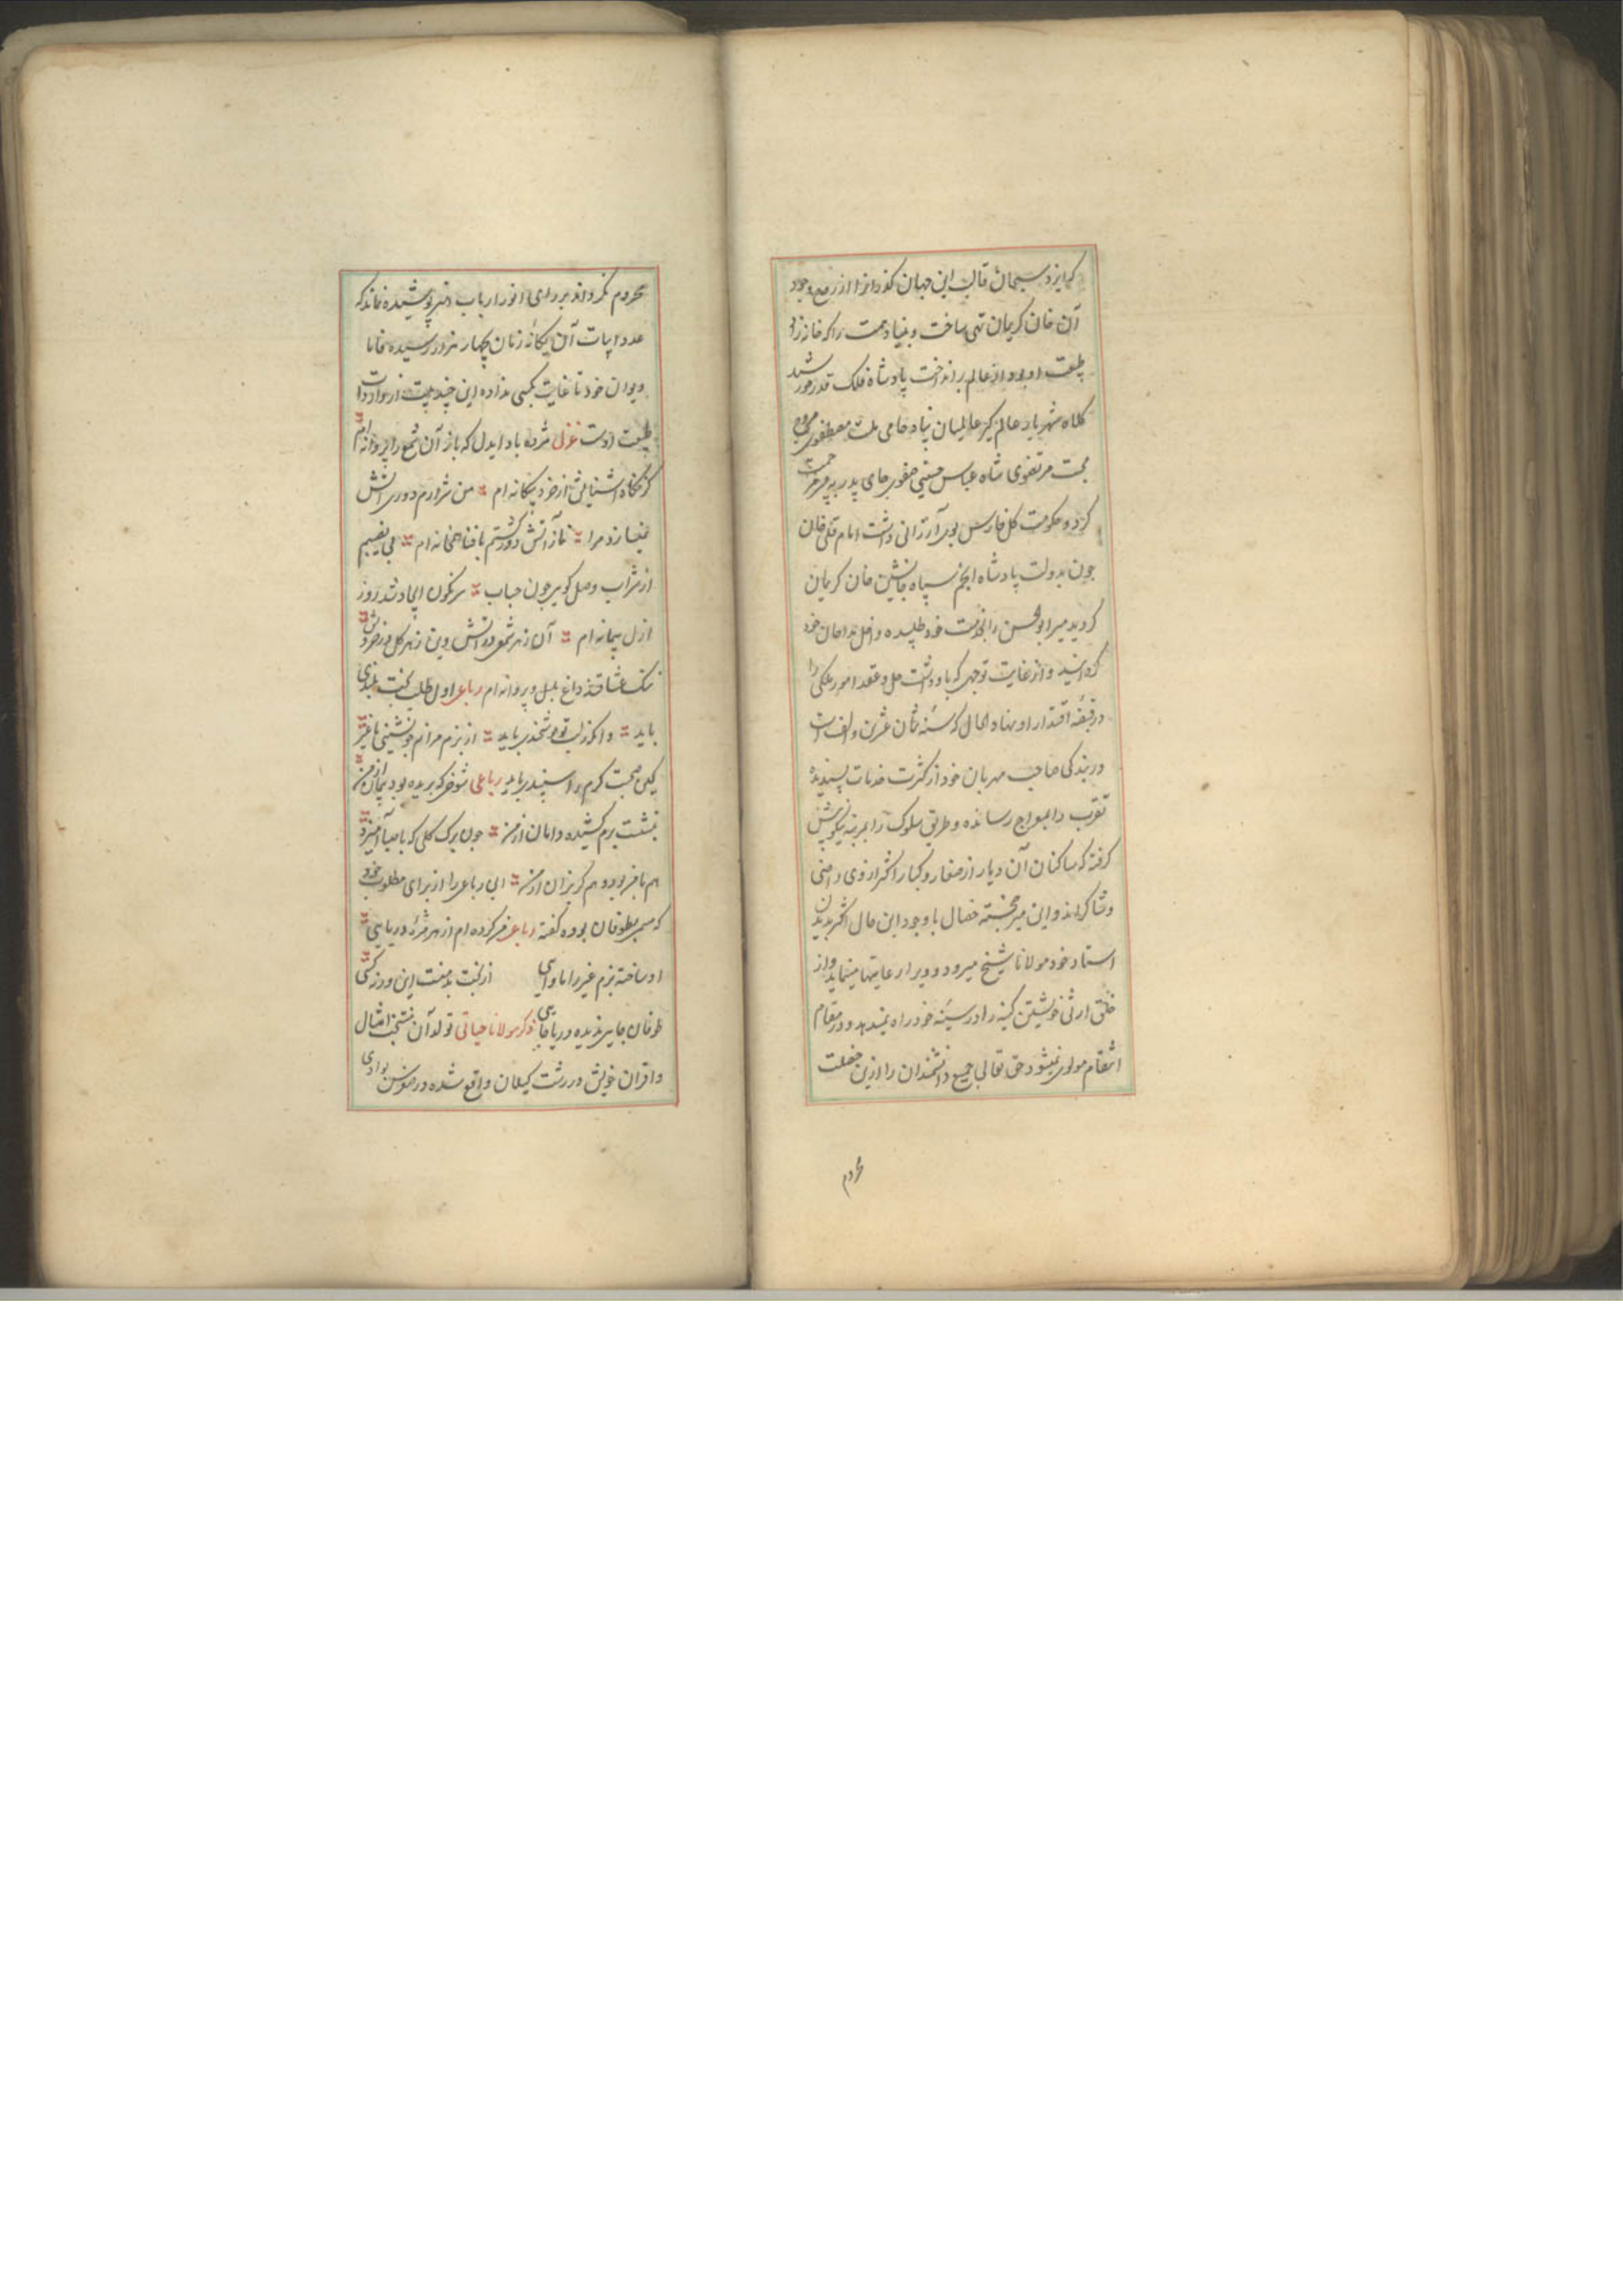 که ایزد سبحان قالب این جهان گذرانرا از روح وجود
آن خان کریمان تهی ساخت و بنیاد همت را که خانه زاد
طبیعت او بود از عالم برانداخت پادشاه فلک قدر خورشید
کلاه شهریار عالم گیر عالمیان پناه حامی ملت مصطفوی مروج
محبت مرتضوی شاه عباس حسینی صفوی جای پدر به پسر مرحمت
کرد و حکومت کل فارس بوی ارزانی داشت امام قلی خان
چون بدولت پادشاه انجم سپاه جانشین خان کریمان
گردید میر ابوالحسن را بخدمت خود طلبیده داخل ندیمان خود
گردانید و از غایت توجهی که باو داشت حل و عقد امور ملکی را
در قبضه اقتدار او نهاد الحال که سنه ثمان عشرین و الف است
در بندگی صاحب مهربان خود از کثرت خدمات پسندیده
تقرب را بمعراج رسانده و طریق سلوک را بمرتبه نیکو پیش
گرفته که ساکنان آن دیار از صغار و کبار اکثر از وی راضی
و شاکراند و این میر خجسته خصال با وجود این حال اکثر بدیدن
استاد خود مولانا شیخ میرود و ویرا رعایتها مینماید و از
خلق ارثی خویشتن کینه را در سینه خود راه نمیدهد و در مقام
انتقام مولوی نمیشود حق تعالی جمیع دانشمندان را ازین خصلت
محروم
محروم نگرداند بر رای انور ارباب هنر پوشیده نماند که
عدد ابیات آن یگانه زمان بچهار هزار رسیده فاما
دیوان خود تا غایت بکسی نداده این چند بیت از واردات
طبیعت اوست غزل مژده باد ایدل که باز آن شمع را پروانه ام
کز نگاه آشنایش از خرد بیگانه ام من شرارم دوری آتش
نمیسازد مرا تا ز آتش دور گشتم با فنا همخانه ام بی نصیبم
از شراب وصل گویی چون حباب سرنگون ایجاد شد روز
ازل پیمانه ام آن ز هر شمعی در آتش وین ز هر گل در خروش
ننگ عشاقند داغ بلبل و پروانه ام رباعی اول طلب بخت بلندی
باید وانگه ز لب تو نوشخندی باید از بزم مرانم چو نشینی با غیر
کین صحبت گرم را سپندی باید رباعی شوخی که بریده بود پیمان از من
بنشست برم کشیده دامان از من چون برگ گلی که با صبا آمیزد
هم با من بود و هم گریزان از من این رباعی را از برای مطلوب خود
که مسمی بطوفان بوده گفته رباعی من کرده ام از هر مژه دریایی
او ساخته بزم غیر را ماوایی از بخت بدمنست این ورنه کسی
طوفان جایی ندیده دریا جایی ذکر مولانا حیاتی تولد آن منتخب امثال
و اقران خویش در رشت گیلان واقع شده در سن بوادی